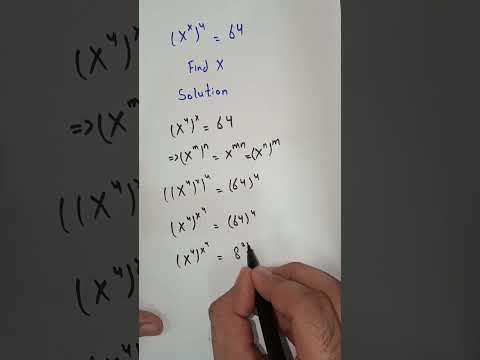 (X^x)^4 = 64
Find X
Solution
(X^4)^x = 64
=>(X^m)^n = X^mn = (X^n)^m
((X^4)^x)^4 = (64)^4
(X^4)^x^4 = (64)^4
(X^4)^x^4 = 8^2